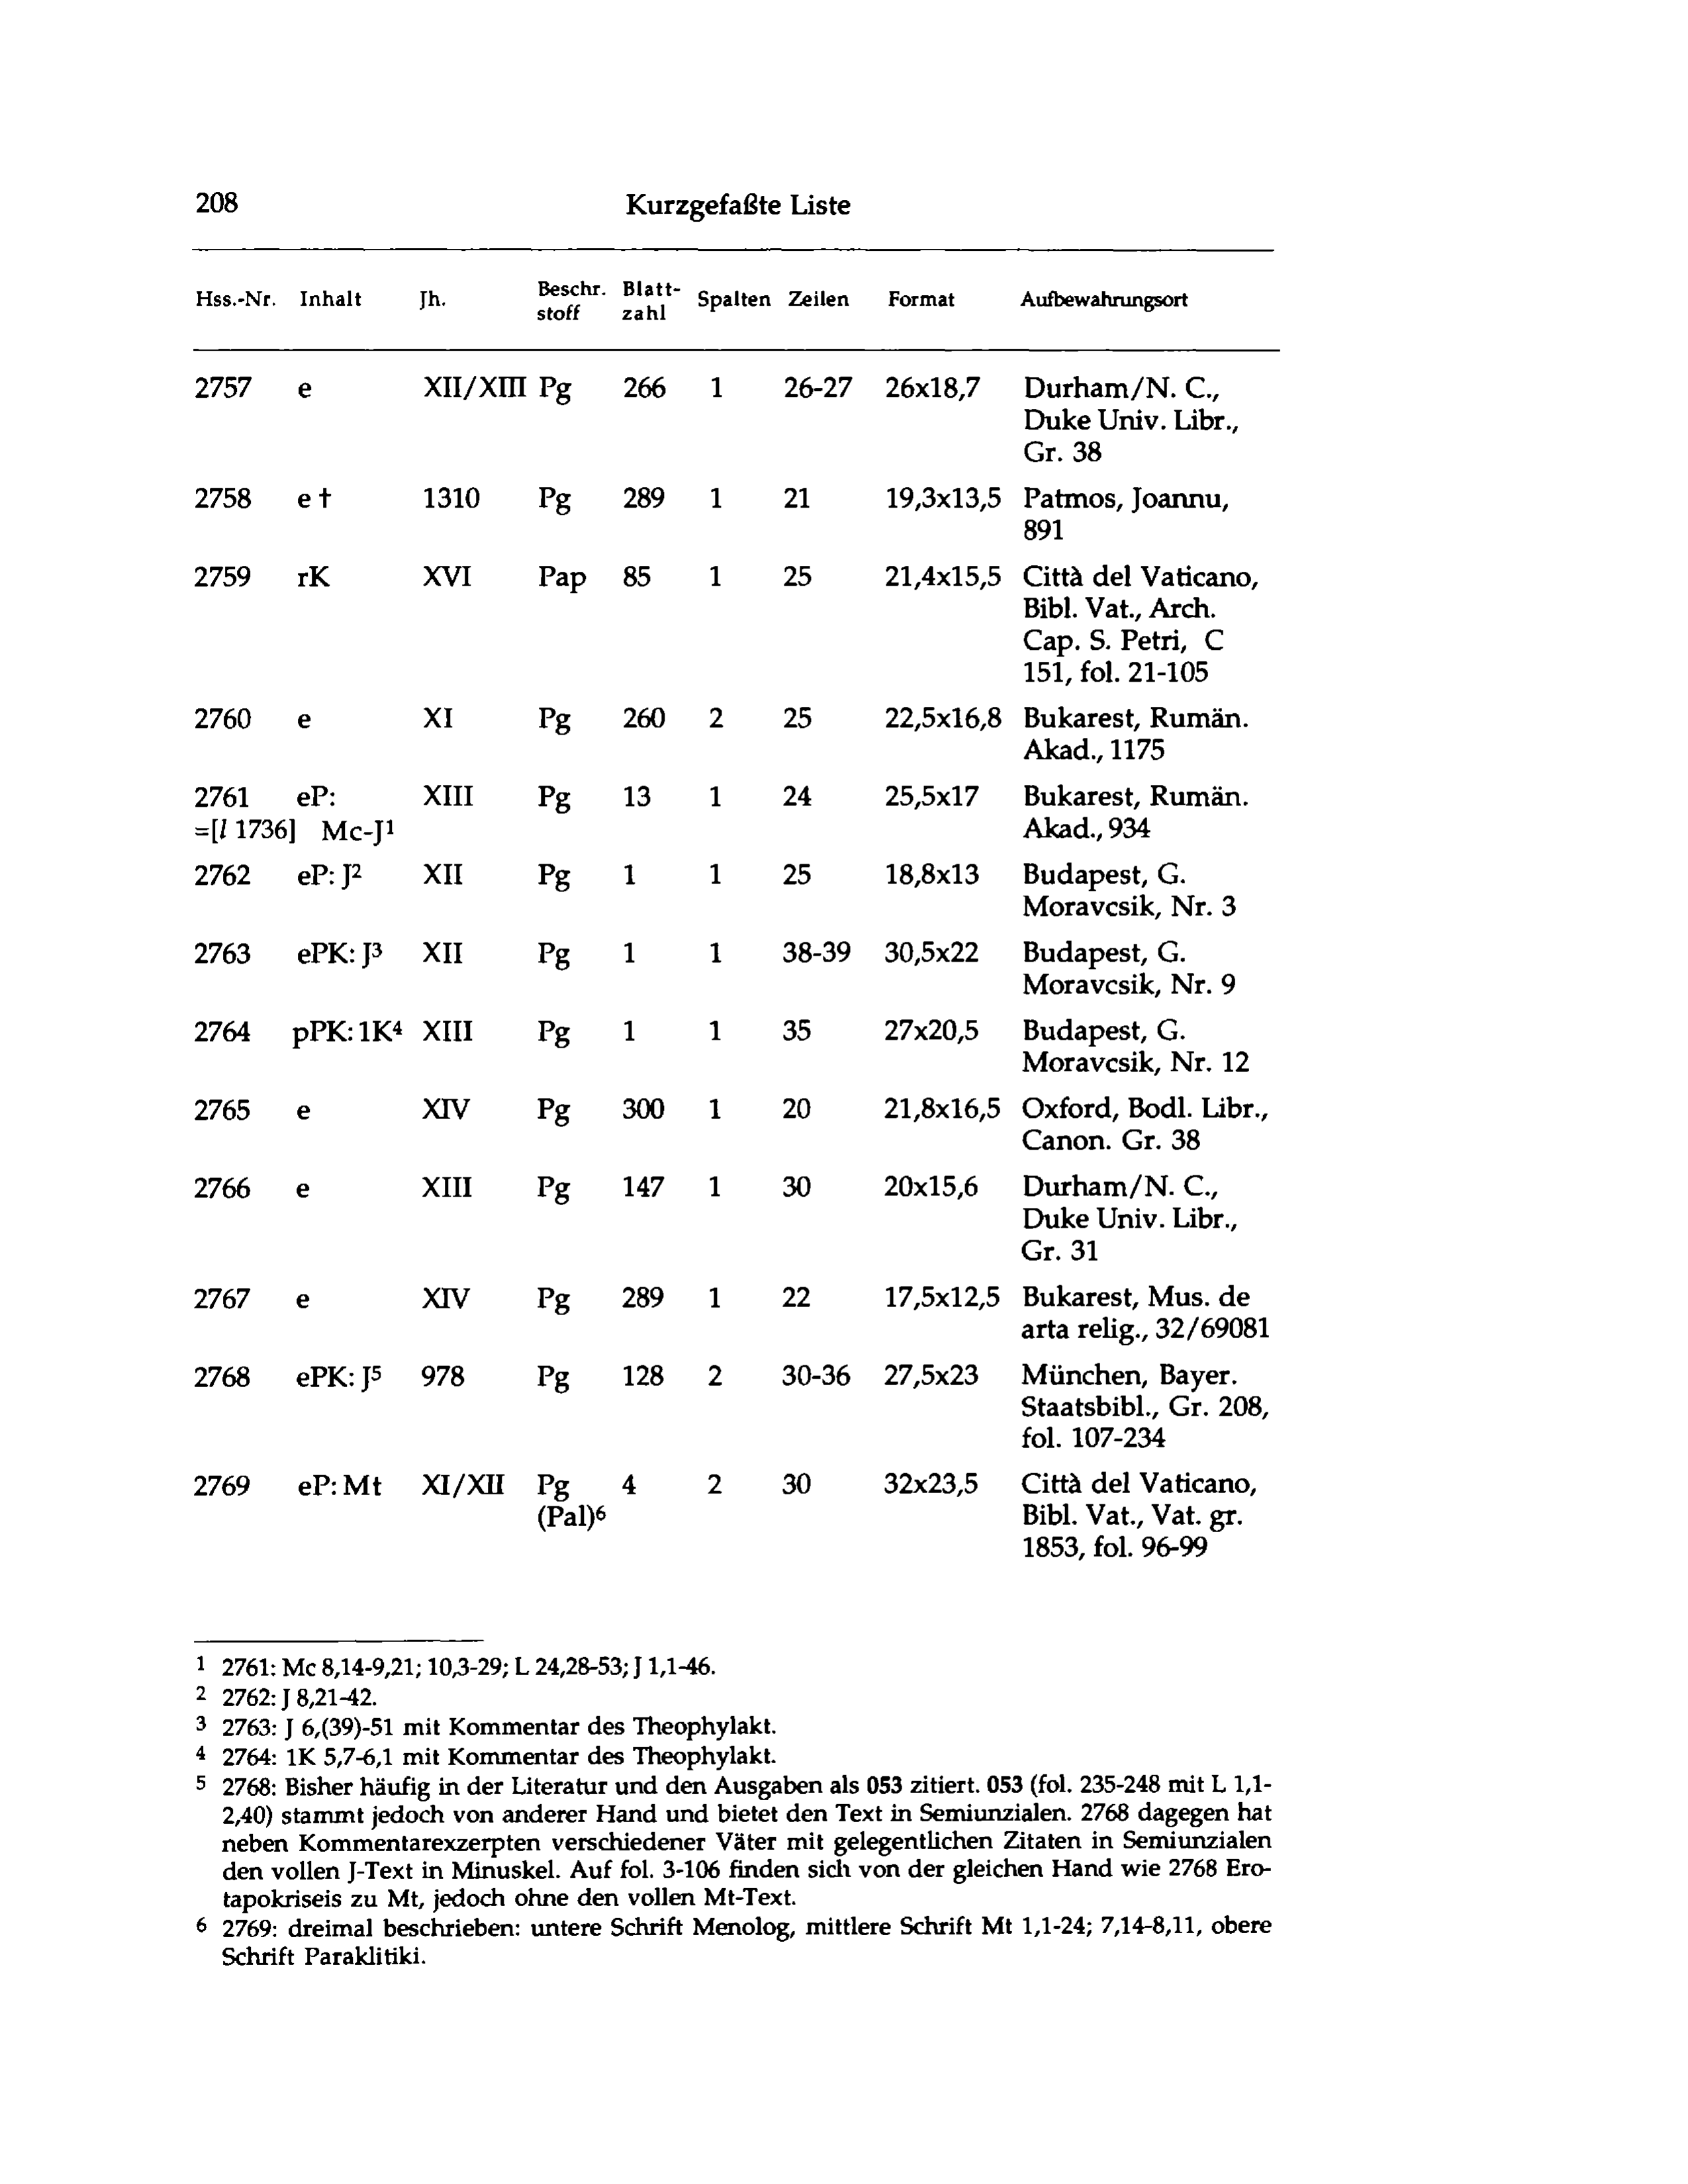 208 Kurzgefaßte Liste
Hss.-Nr. Inhalt Jh. Beschr. stoff Blatt- zahl Spalten Zeilen Format Aufbewahrungsort
2757 e XII/XIII Pg 266 1 26-27 26x18,7 Durham/N. C.,
Duke Univ. Libr.,
Gr. 38
2758 e † 1310 Pg 289 1 21 19,3x13,5 Patmos, Joannu,
891
2759 rK XVI Pap 85 1 25 21,4x15,5 Città del Vaticano,
Bibl. Vat., Arch.
Cap. S. Petri, C
151, fol. 21-105
2760 e XI Pg 260 2 25 22,5x16,8 Bukarest, Rumän.
Akad., 1175
2761 eP: XIII Pg 13 1 24 25,5x17 Bukarest, Rumän.
=[l 1736] Mc-J¹ Akad., 934
2762 eP: J² XII Pg 1 1 25 18,8x13 Budapest, G.
Moravcsik, Nr. 3
2763 ePK: J³ XII Pg 1 1 38-39 30,5x22 Budapest, G.
Moravcsik, Nr. 9
2764 pPK: 1K⁴ XIII Pg 1 1 35 27x20,5 Budapest, G.
Moravcsik, Nr. 12
2765 e XIV Pg 300 1 20 21,8x16,5 Oxford, Bodl. Libr.,
Canon. Gr. 38
2766 e XIII Pg 147 1 30 20x15,6 Durham/N. C.,
Duke Univ. Libr.,
Gr. 31
2767 e XIV Pg 289 1 22 17,5x12,5 Bukarest, Mus. de
arta relig., 32/69081
2768 ePK: J⁵ 978 Pg 128 2 30-36 27,5x23 München, Bayer.
Staatsbibl., Gr. 208,
fol. 107-234
2769 eP: Mt XI/XII Pg 4 2 30 32x23,5 Città del Vaticano,
(Pal)⁶ Bibl. Vat., Vat. gr.
1853, fol. 96-99
¹ 2761: Mc 8,14-9,21; 10,3-29; L 24,28-53; J 1,1-46.
² 2762: J 8,21-42.
³ 2763: J 6,(39)-51 mit Kommentar des Theophylakt.
⁴ 2764: 1K 5,7-6,1 mit Kommentar des Theophylakt.
⁵ 2768: Bisher häufig in der Literatur und den Ausgaben als 053 zitiert. 053 (fol. 235-248 mit L 1,1-
2,40) stammt jedoch von anderer Hand und bietet den Text in Semiunzialen. 2768 dagegen hat
neben Kommentarexzerpten verschiedener Väter mit gelegentlichen Zitaten in Semiunzialen
den vollen J-Text in Minuskel. Auf fol. 3-106 finden sich von der gleichen Hand wie 2768 Ero-
tapokriseis zu Mt, jedoch ohne den vollen Mt-Text.
⁶ 2769: dreimal beschrieben: untere Schrift Menolog, mittlere Schrift Mt 1,1-24; 7,14-8,11, obere
Schrift Paraklitiki.